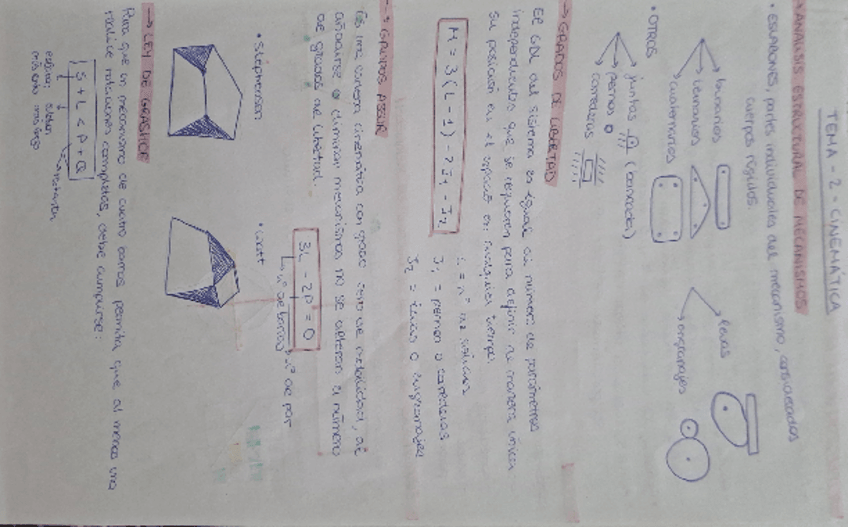 TEMA - 2 - CINEMÁTICA
→ ANÁLISIS ESTRUCTURAL DE MECANISMOS
• ESLABONES, partes individuales del mecanismo, consideradas
cuerpos rígidos.
binarios
ternarios
cuaternarios
levas
engranajes
• OTROS
juntas (bancada)
pernos
correderas
→ GRADOS DE LIBERTAD
GE GDL del sistema es igual al número de parámetros
independientes que se requieren para definir de manera única
su posición en el espacio en cualquier tiempo
M = 3(L - 1) - 2J1 - J2
L = nº de eslabones
J1 = pernos o correderas
J2 = levas o engranajes
→ GRUPOS ASSUR
Es una cadena cinemática con grado cero de movilidad, al
añadirse o eliminar mecanismos no se alteran el número
de grados de libertad.
3L - 2P = 0
nº de barras
nº de par
• Stephenson
• Watt
→ LEY DE GRASHOF
Para que un mecanismo de cuatro barras permita que al menos una
realice rotaciones completas, debe cumplirse:
S + L < P + Q
eslabón
más largo